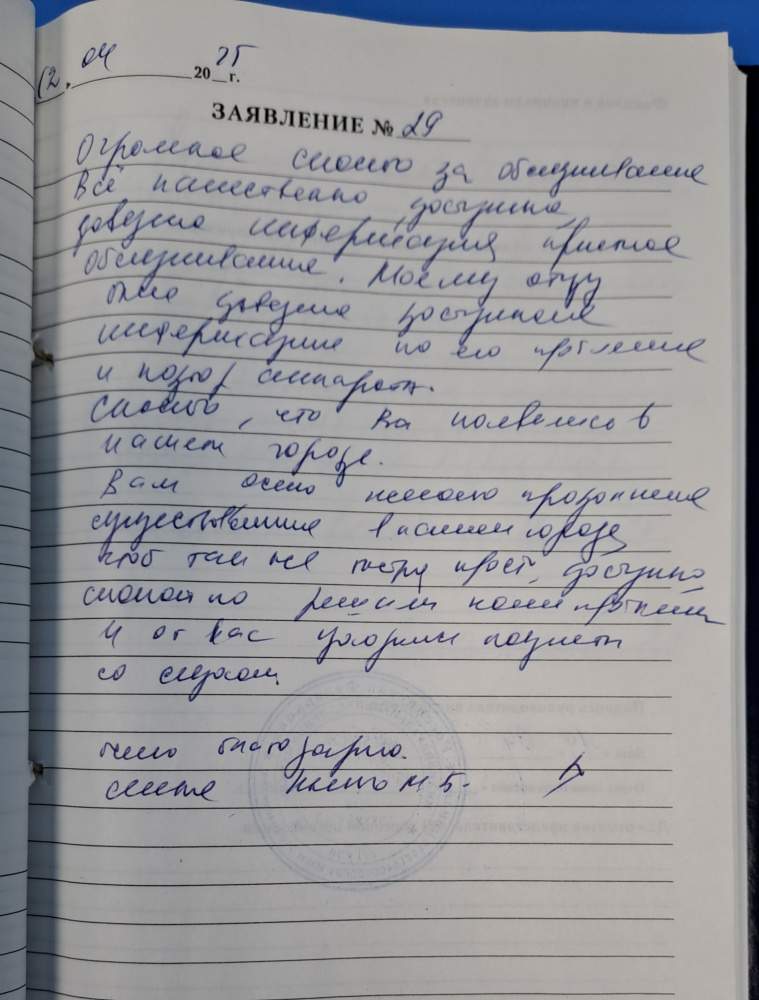 12. 04 2025 г.
ЗАЯВЛЕНИЕ № 29
Огромное спасибо за обслуживание
Всё качественно, доступно,
доведено информация, приятное
обслуживание. Моему отцу
была доведена доступная
информация по его проблеме
и подбор аппарата.
Спасибо, что Вы появились в
нашем городе.
Вам желаю продолжение
существования в нашем городе,
чтоб так же быстро, просто, доступно,
спокойно решали наши проблемы
И от Вас уходили пациенты
со слухом.
благодарю.
семья М Б.